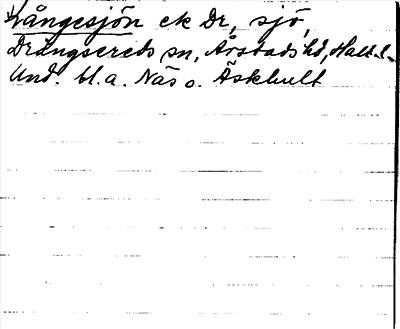 Långesjön ek Dr, sjö,
Drängsereds sn, Årstads hd, Hall. l.
Und. bl.a. Näs o. Äskhult